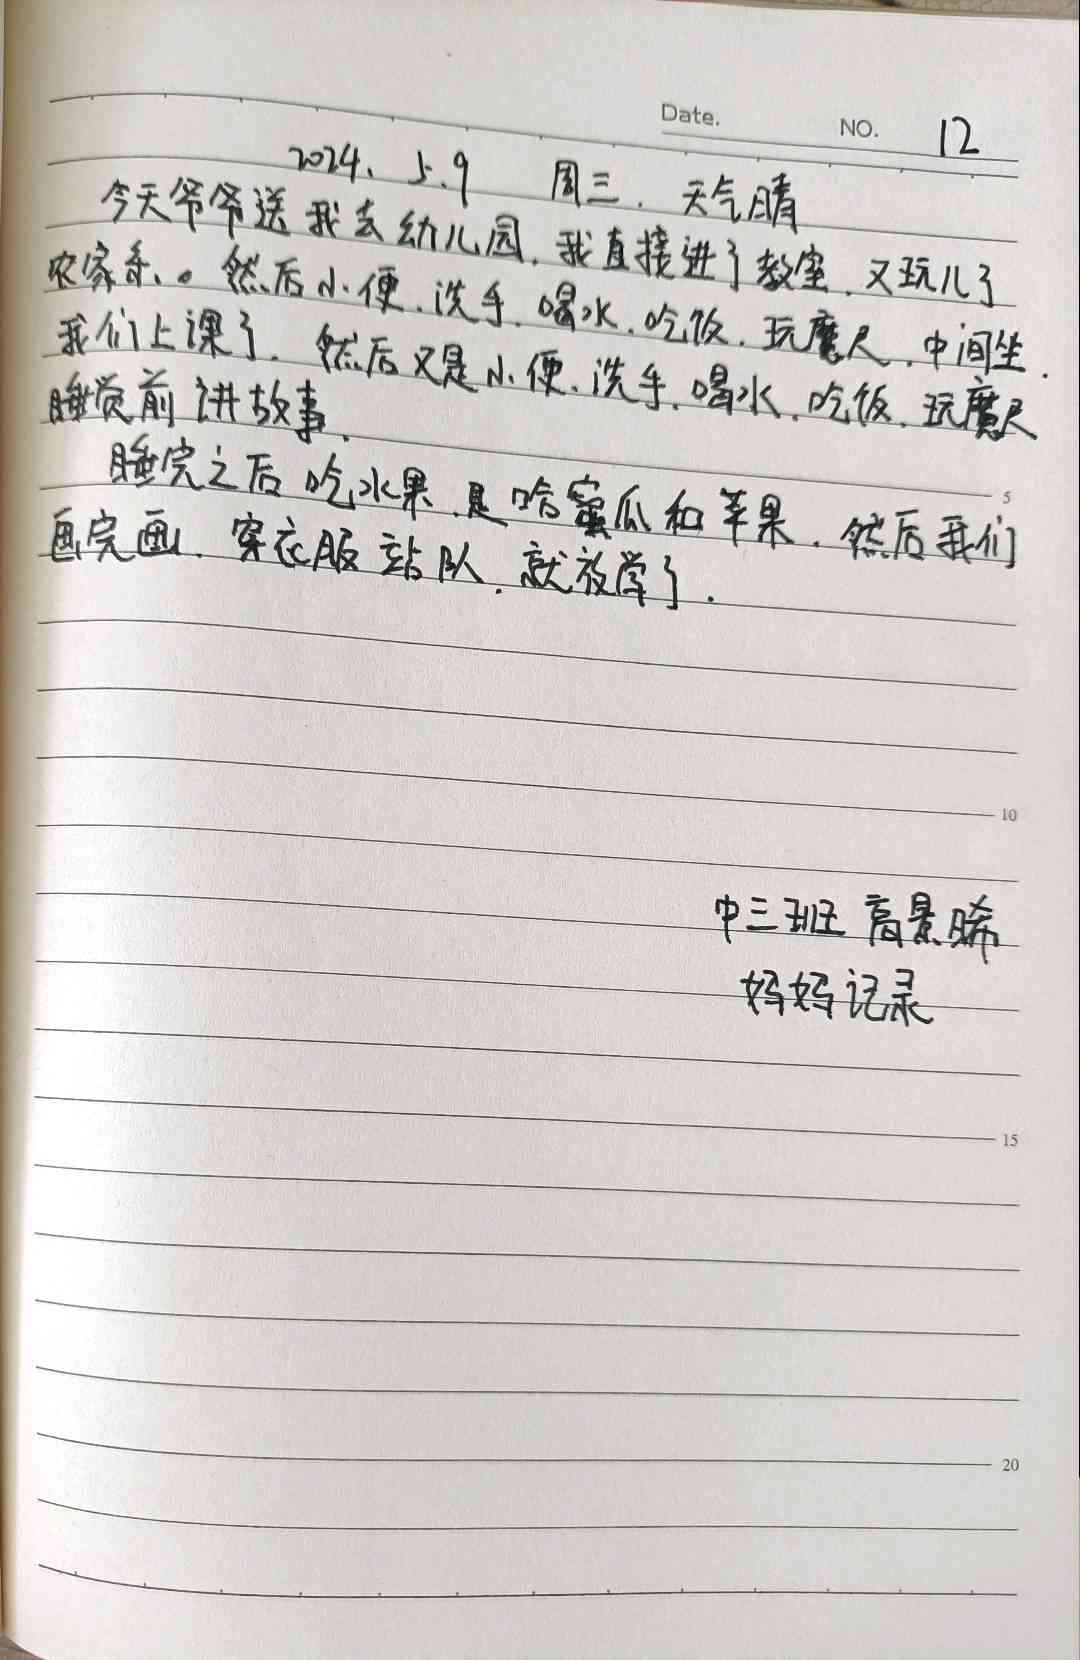 Date.
NO. 12
2024. 5.9 周三. 天气晴
今天爷爷送我去幼儿园.我直接进了教室.又玩儿了
农家乐.。然后小便.洗手.喝水.吃饭.玩魔尺.中间坐.
我们上课了.然后又是小便.洗手.喝水.吃饭.玩魔尺
睡觉前讲故事.
睡完之后吃水果.是哈蜜瓜和苹果.然后我们
画完画.穿衣服站队.就放学了.
5
10
中三班 高景晞
妈妈记录
15
20